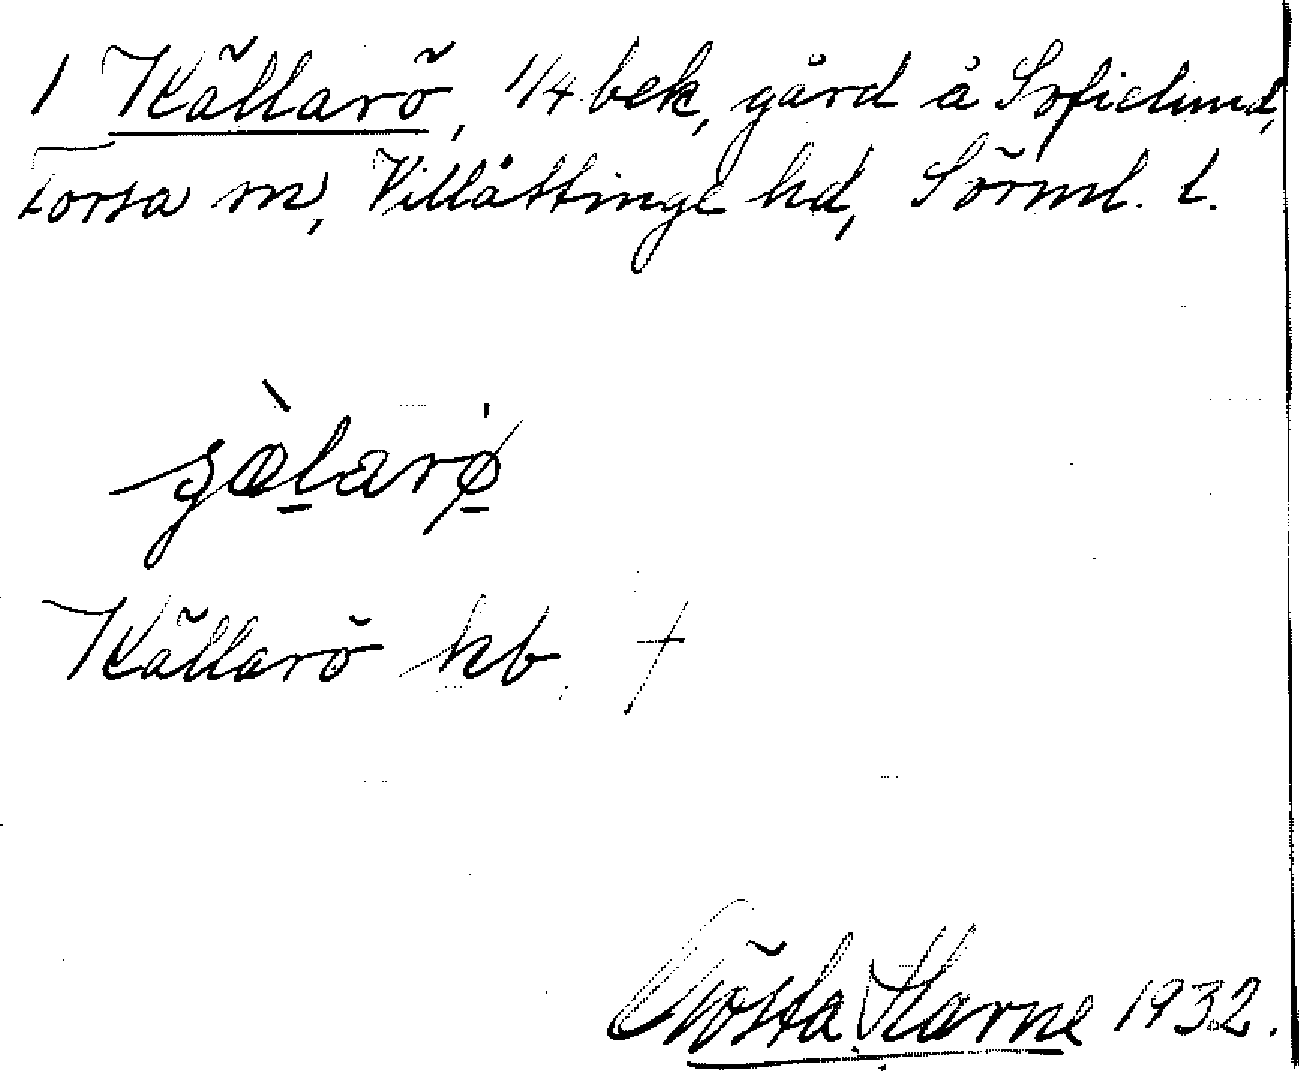 1 Källarö, 1/4 bek, gård å Sofielund,
Torsa sn, Villåttinge hd, Sörml. l.
Källarö kb. †
Gösta Karne 1932.